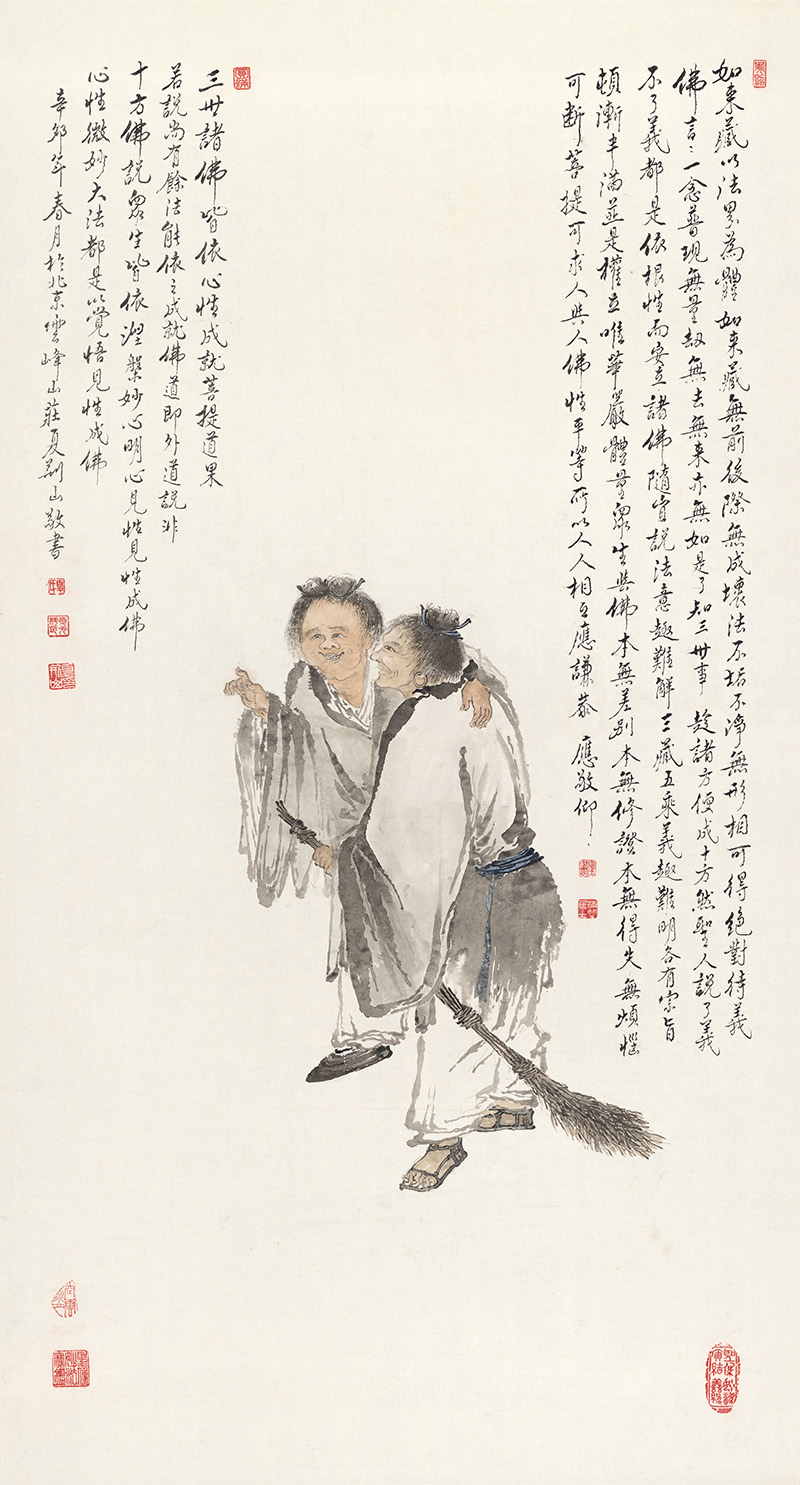 如来藏以法界為體如来藏無前後際無成壞法不垢不淨無形相可得絕對待義
佛言：一念普現無量劫無去無来亦無如是了知三世事 趍諸方便成十方然聖人説了義
不了義都是依根性而安立諸佛隨宜説法意趣難解三藏五乘義趣難明各有宗旨
頓漸半滿並是權立唯華嚴體量眾生與佛本無差别本無修證本無得失無煩惱
可断菩提可求人與人佛性平等所以人人相互應謙恭 應敬仰
三世諸佛皆依心性成就菩提道果
若説尚有餘法能依之成就佛道即外道説非
十方佛説眾生皆依涅槃妙心明心見性見性成佛
心性微妙大法都是以覺悟見性成佛
辛卯年春月於北京雲峰山莊夏荆山敬書